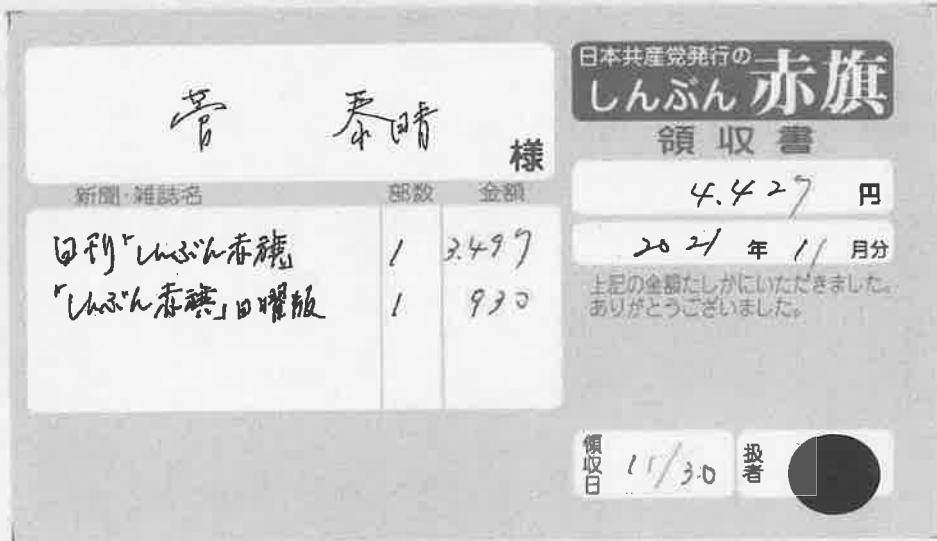 菅 泰晴 様
新聞・雑誌名 部数 金額
日刊「しんぶん赤旗」 1 3.497
「しんぶん赤旗」日曜版 1 930
日本共産党発行の
しんぶん赤旗
領収書
4.427 円
2021 年 11 月分
上記の金額たしかにいただきました。
ありがとうございました。
領収日 11/30 扱者